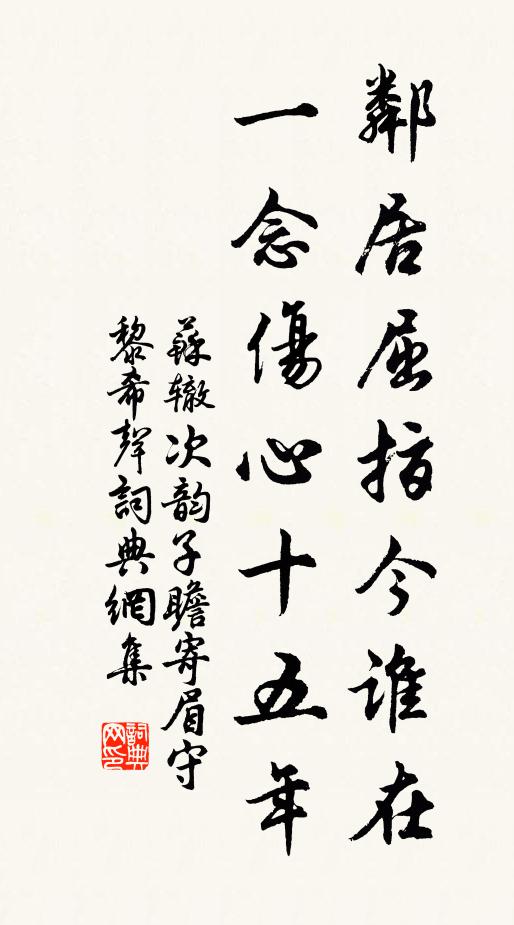 鄰居屈指今誰在
一念傷心十五年
蘇轍次韵子瞻寄眉守
黎希聲詞典網集
詞典网印